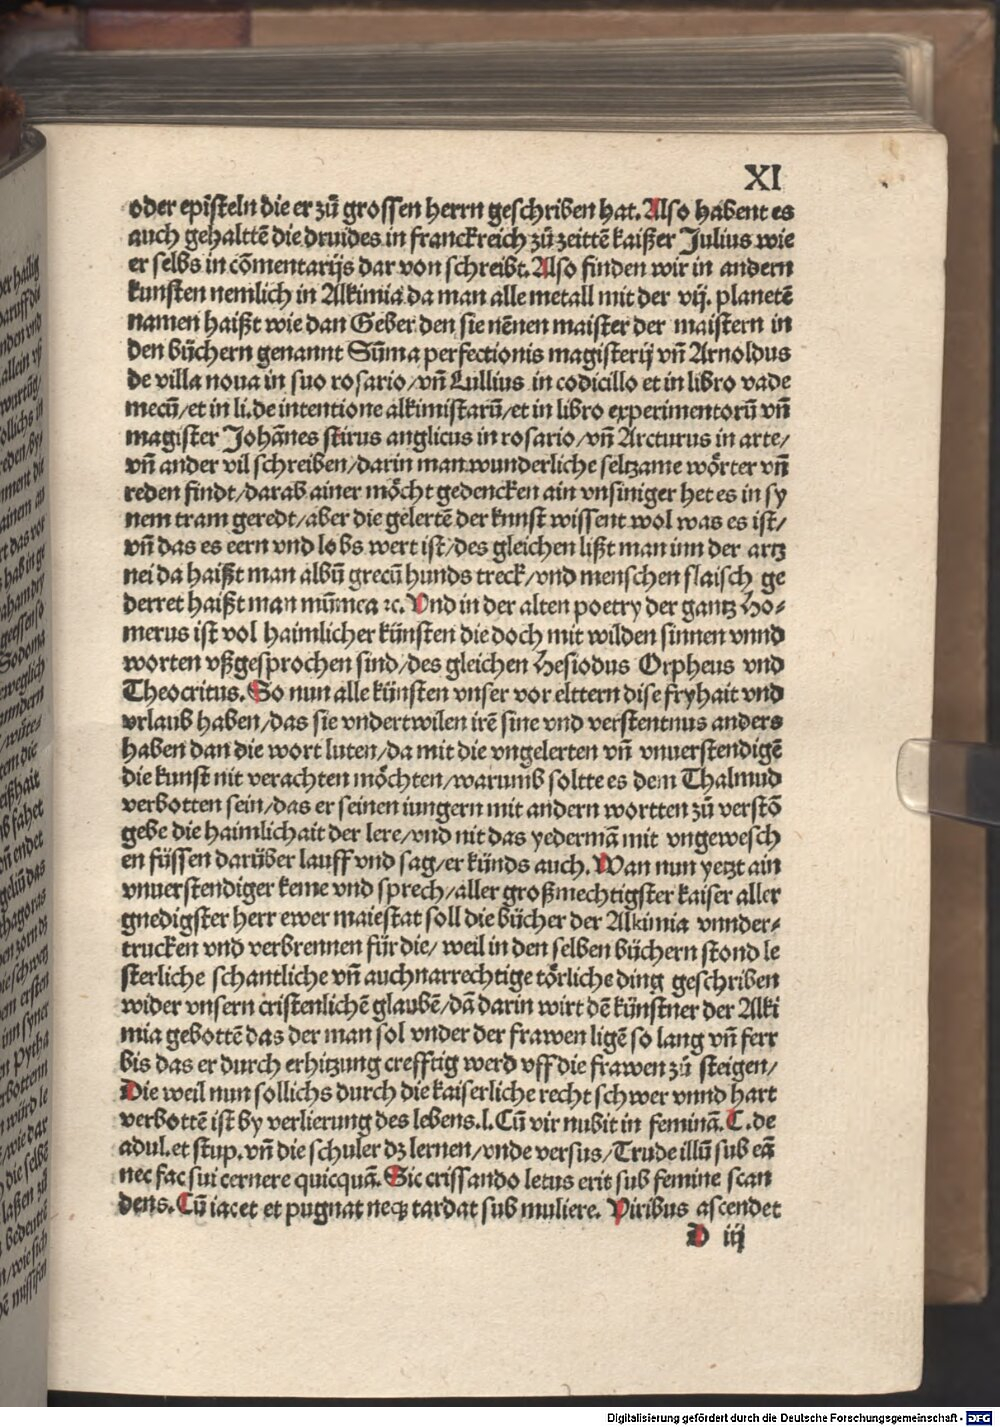 XI
oder epiſteln die er zů groſſen herrn geſchriben hat. Alſo habent es
auch gehalttẽ die druides in franckreich zů zeittẽ kaiſzer Julius wie
er ſelbs in cõmentarijs dar von ſchreibt. Alſo finden wir in andern
kunſten nemlich in Alkimia da man alle metall mit der vij. planetẽ
namen haiſzt wie dan Geber den ſie nẽnen maiſter der maiſtern in
den bůchern genannt Sũma perfectionis magiſterij vñ Arnoldus
de villa noua in ſuo roſario/vñ Lullius in codicillo et in libro vade
mecũ/et in li.de intentione alkimiſtarũ/et in libro experimentorũ vñ
magiſter Johãnes ſtirus anglicus in roſario/vñ Arcturus in arte/
vñ ander vil ſchreiben/darin man wunderliche ſeltzame wörter vñ
reden findt/darab ainer möcht gedencken ain vnſiniger het es in ſy
nem tram geredt/aber die gelertẽ der knnſt wiſſent wol was es iſt/
vñ das es eern vnd lobs wert iſt/des gleichen liſzt man inn der artz
nei da haiſzt man albũ grecũ hunds treck/vnd menſchen flaiſch ge
derret haiſzt man mũmea ꝛc. Vnd in der alten poetry der gantz Ho⸗
merus iſt vol haimlicher künſten die doch mit wilden ſinnen vnnd
worten vſzgeſprochen ſind/des gleichen Heſiodus Orpheus vnd
Theocritus. So nun alle künſten vnſer vor elttern diſe fryhait vnd
vrlaub haben/das ſie vndertwilen irẽ ſine vnd verſtentnus anders
haben dan die wort luten/da mit die vngelerten vñ vnuerſtendigẽ
die kunſt nit verachten möchten/warumb ſoltte es dem Thalmud
verbotten ſein/das er ſeinen iungern mit andern wortten zů verſtõ
gebe die haimlichait der lere/vnd nit das yedermã mit vngeweſch
en füſſen darüber lauff vnd ſag/er künds auch. Wan nun yetzt ain
vnuerſtendiger keme vnd ſprech/aller groſzmechtigſter kaiſer aller
gnedigſter herr ewer maieſtat ſoll die bücher der Alkimia vnnder⸗
trucken vnd verbrennen für die/ weil in den ſelben büchern ſtond le
ſterliche ſchantliche vñ auchnarrechtige törliche ding geſchriben
wider vnſern criſtenlichẽ glaubẽ/dã darin wirt dẽ künſtner der Alki
mia gebottẽ das der man ſol vnder der frawen ligẽ ſo lang vñ ferr
bis das er durch erhitzung crefftig werd vff die frawen zů ſteigen/
Die weil nun ſollichs durch die kaiſerliche recht ſchwer vnnd hart
verbottẽ iſt by verlierung des lebens.l.Cũ vir nubit in feminã.C.de
adul.et ſtup.vñ die ſchuler dz lernen/vnde verſus/Trude illũ ſub eã
nec fac ſui cernere quicquã. Sic criſſando letus erit ſub femine ſcan
dens. Cũ iacet et pugnat neqꝫ tardat ſub muliere. Viribus aſcendet
D iij
Digitalisierung gefördert durch die Deutsche Forschungsgemeinschaft - DFG